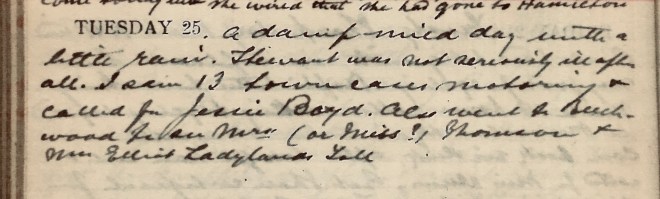 she wired that she had gone to Hamilton
TUESDAY 25. A damp mild day with a
little rain. Stewart was not seriously ill after
all. I saw 13 town cases motoring &
called for Jessie Boyd. Also went to Beech-
wood to see Mrs (or Miss?) Thomson &
Mrs Elliot Ladylands Toll